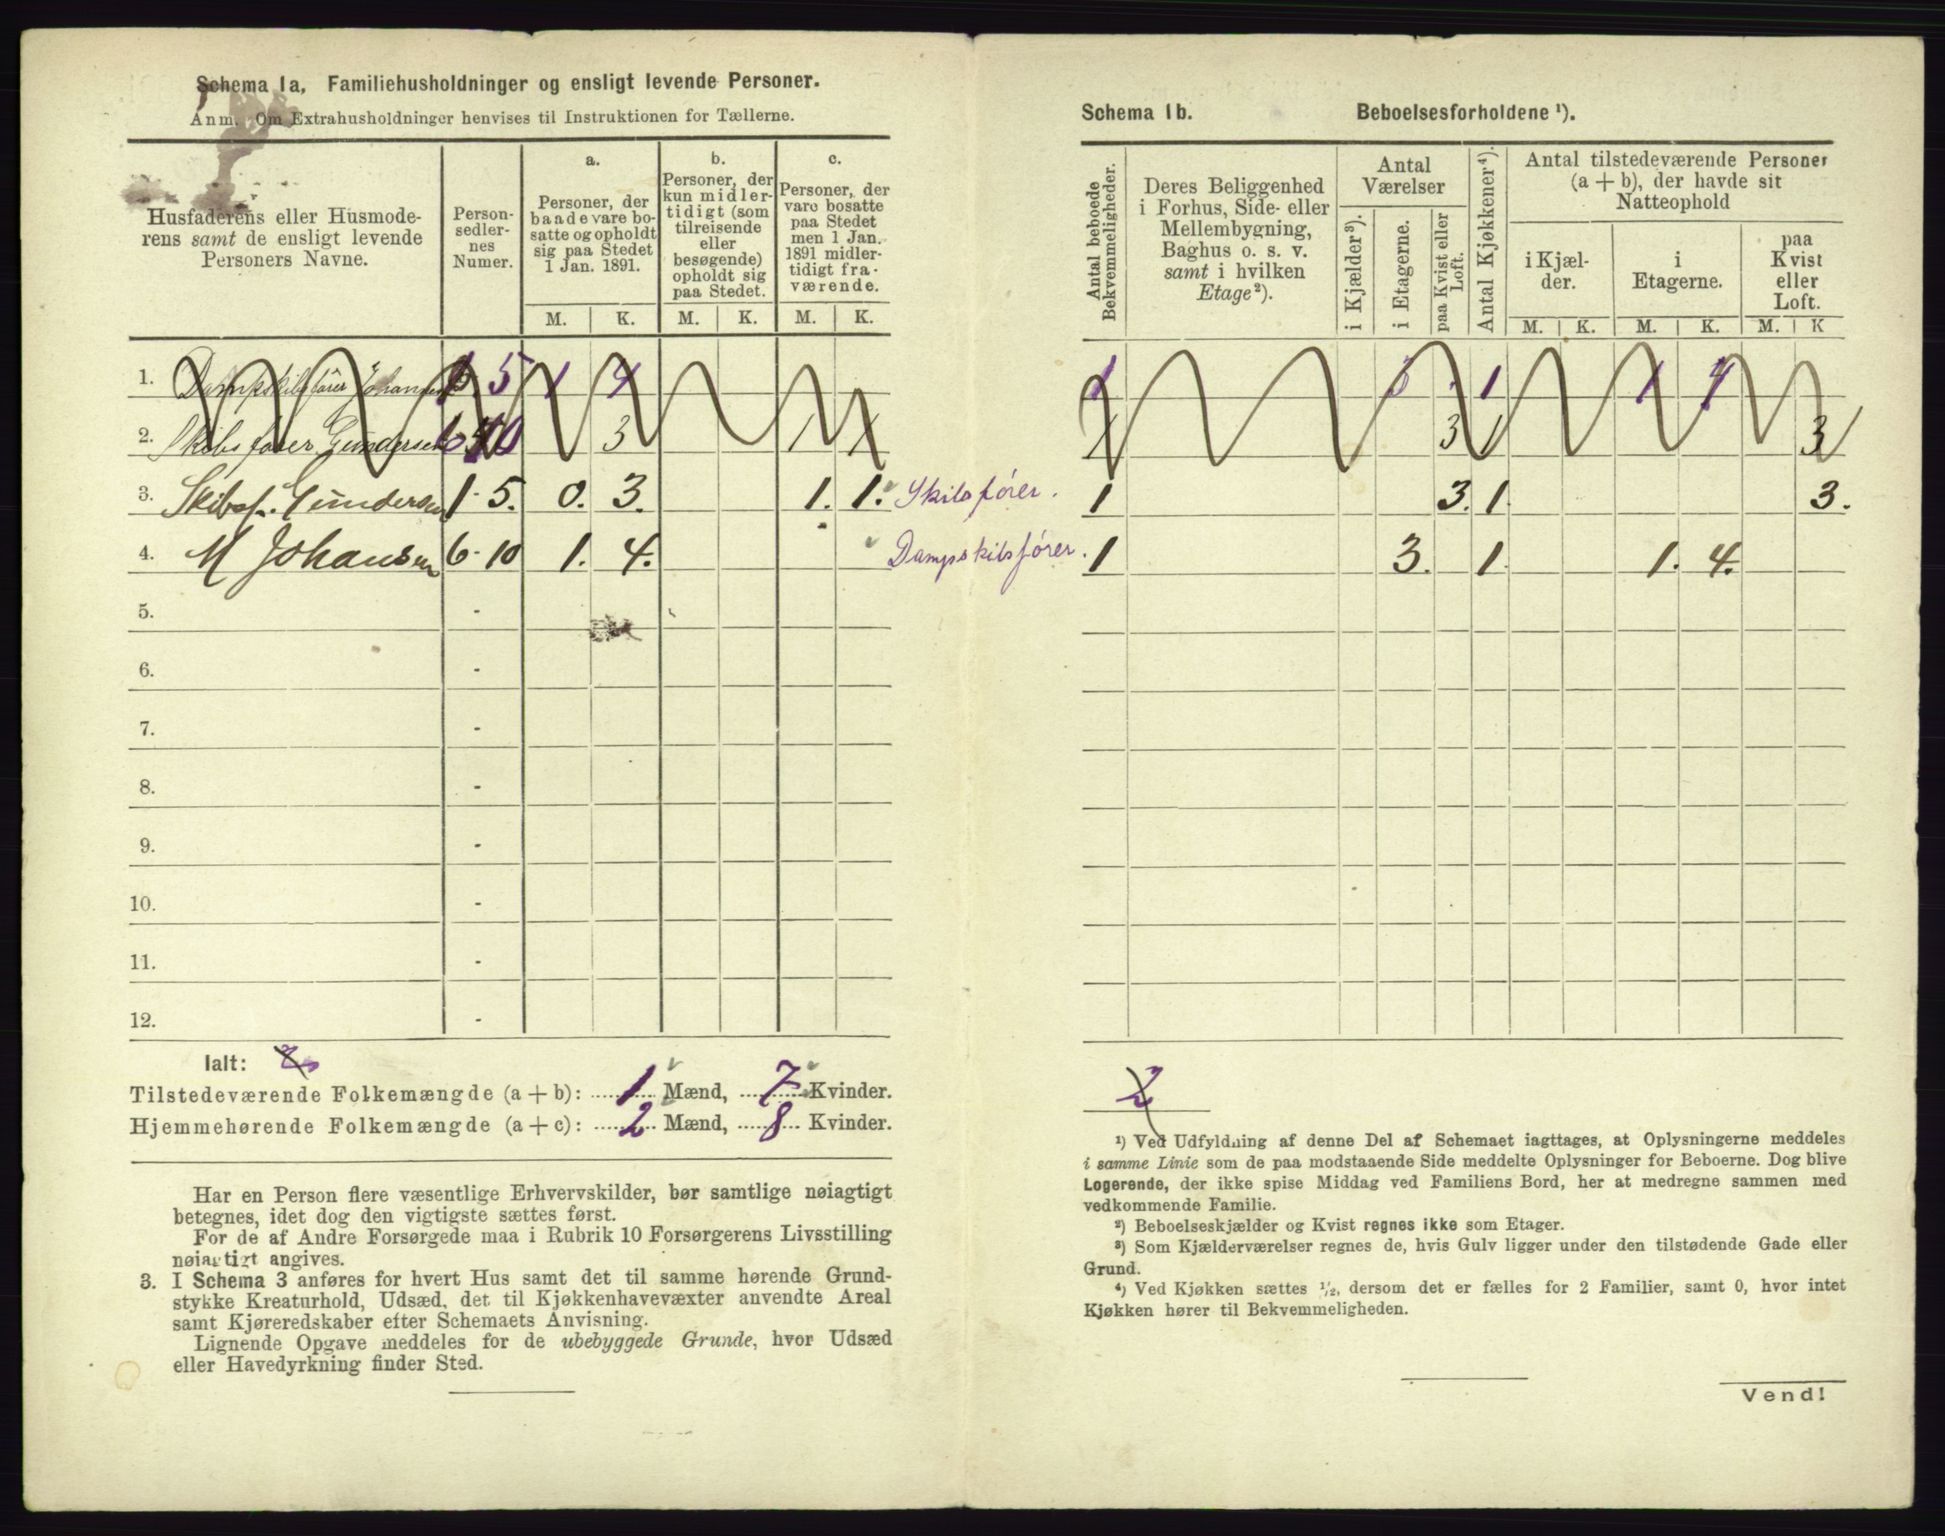 Schema 1a, Familiehusholdninger og ensligt levende Personer.
Anm. Om Extrahusholdninger henvises til Instruktionen for Tællerne.
Husfaderens eller Husmode-
rens samt de ensligt levende
Personers Navne.
Person-
sedler-
nes
Numer.
a.
Personer, der
baade vare bo-
satte og opholdt
sig paa Stedet
1 Jan. 1891.
b.
Personer, der
kun midler-
tidigt (som
tilreisende
eller
besøgende)
opholdt sig
paa Stedet.
c.
Personer, der
vare bosatte
paa Stedet
men 1 Jan.
1891 midler-
tidigt fra-
værende.
M. K. M. K. M. K.
1. Dampskibsfører Johansen 1 5 1 4
2. Skibsfører Gundersen 6 10 3 1 1
3. Skibsf. Gundersen 1-5. 0. 3. 1. 1. Skibsfører.
4. M Johansen 6-10 1. 4. Dampskibsfører.
5. -
6. -
7. -
8. -
9. -
10. -
11. -
12. -
Ialt: 2
Tilstedeværende Folkemængde (a + b): 1 Mænd, 7 Kvinder.
Hjemmehørende Folkemængde (a + c): 2 Mænd, 8 Kvinder.
Har en Person flere væsentlige Erhvervskilder, bør samtlige nøiagtigt
betegnes, idet dog den vigtigste sættes først.
For de af Andre Forsørgede maa i Rubrik 10 Forsørgerens Livsstilling
nøiagtigt angives.
3. I Schema 3 anføres for hvert Hus samt det til samme hørende Grund-
stykke Kreaturhold, Udsæd, det til Kjøkkenhavevæxter anvendte Areal
samt Kjøreredskaber efter Schemaets Anvisning.
Lignende Opgave meddeles for de ubebyggede Grunde, hvor Udsæd
eller Havedyrkning finder Sted.
Schema 1b. Beboelsesforholdene ¹).
Antal beboede
Bekvemmeligheder.
Deres Beliggenhed
i Forhus, Side- eller
Mellembygning,
Baghus o. s. v.
samt i hvilken
Etage²).
Antal
Værelser
i Kjælder³).
i Etagerne.
paa Kvist eller
Loft.
Antal Kjøkkener⁴).
Antal tilstedeværende Personer
(a + b), der havde sit
Natteophold
i Kjæl-
der.
i
Etagerne.
paa
Kvist
eller
Loft.
M. K. M. K. M. K
1 1 1 4
1 3 1 3
1 3. 1. 3.
1 3. 1. 1. 4.
2
¹) Ved Udfyldning af denne Del af Schemaet iagttages, at Oplysningerne meddeles
i samme Linie som de paa modstaaende Side meddelte Oplysninger for Beboerne. Dog blive
Logerende, der ikke spise Middag ved Familiens Bord, her at medregne sammen med
vedkommende Familie.
²) Beboelseskjælder og Kvist regnes ikke som Etager.
³) Som Kjælderværelser regnes de, hvis Gulv ligger under den tilstødende Gade eller
Grund.
⁴) Ved Kjøkken sættes ½, dersom det er fælles for 2 Familier, samt 0, hvor intet
Kjøkken hører til Bekvemmeligheden.
Vend!